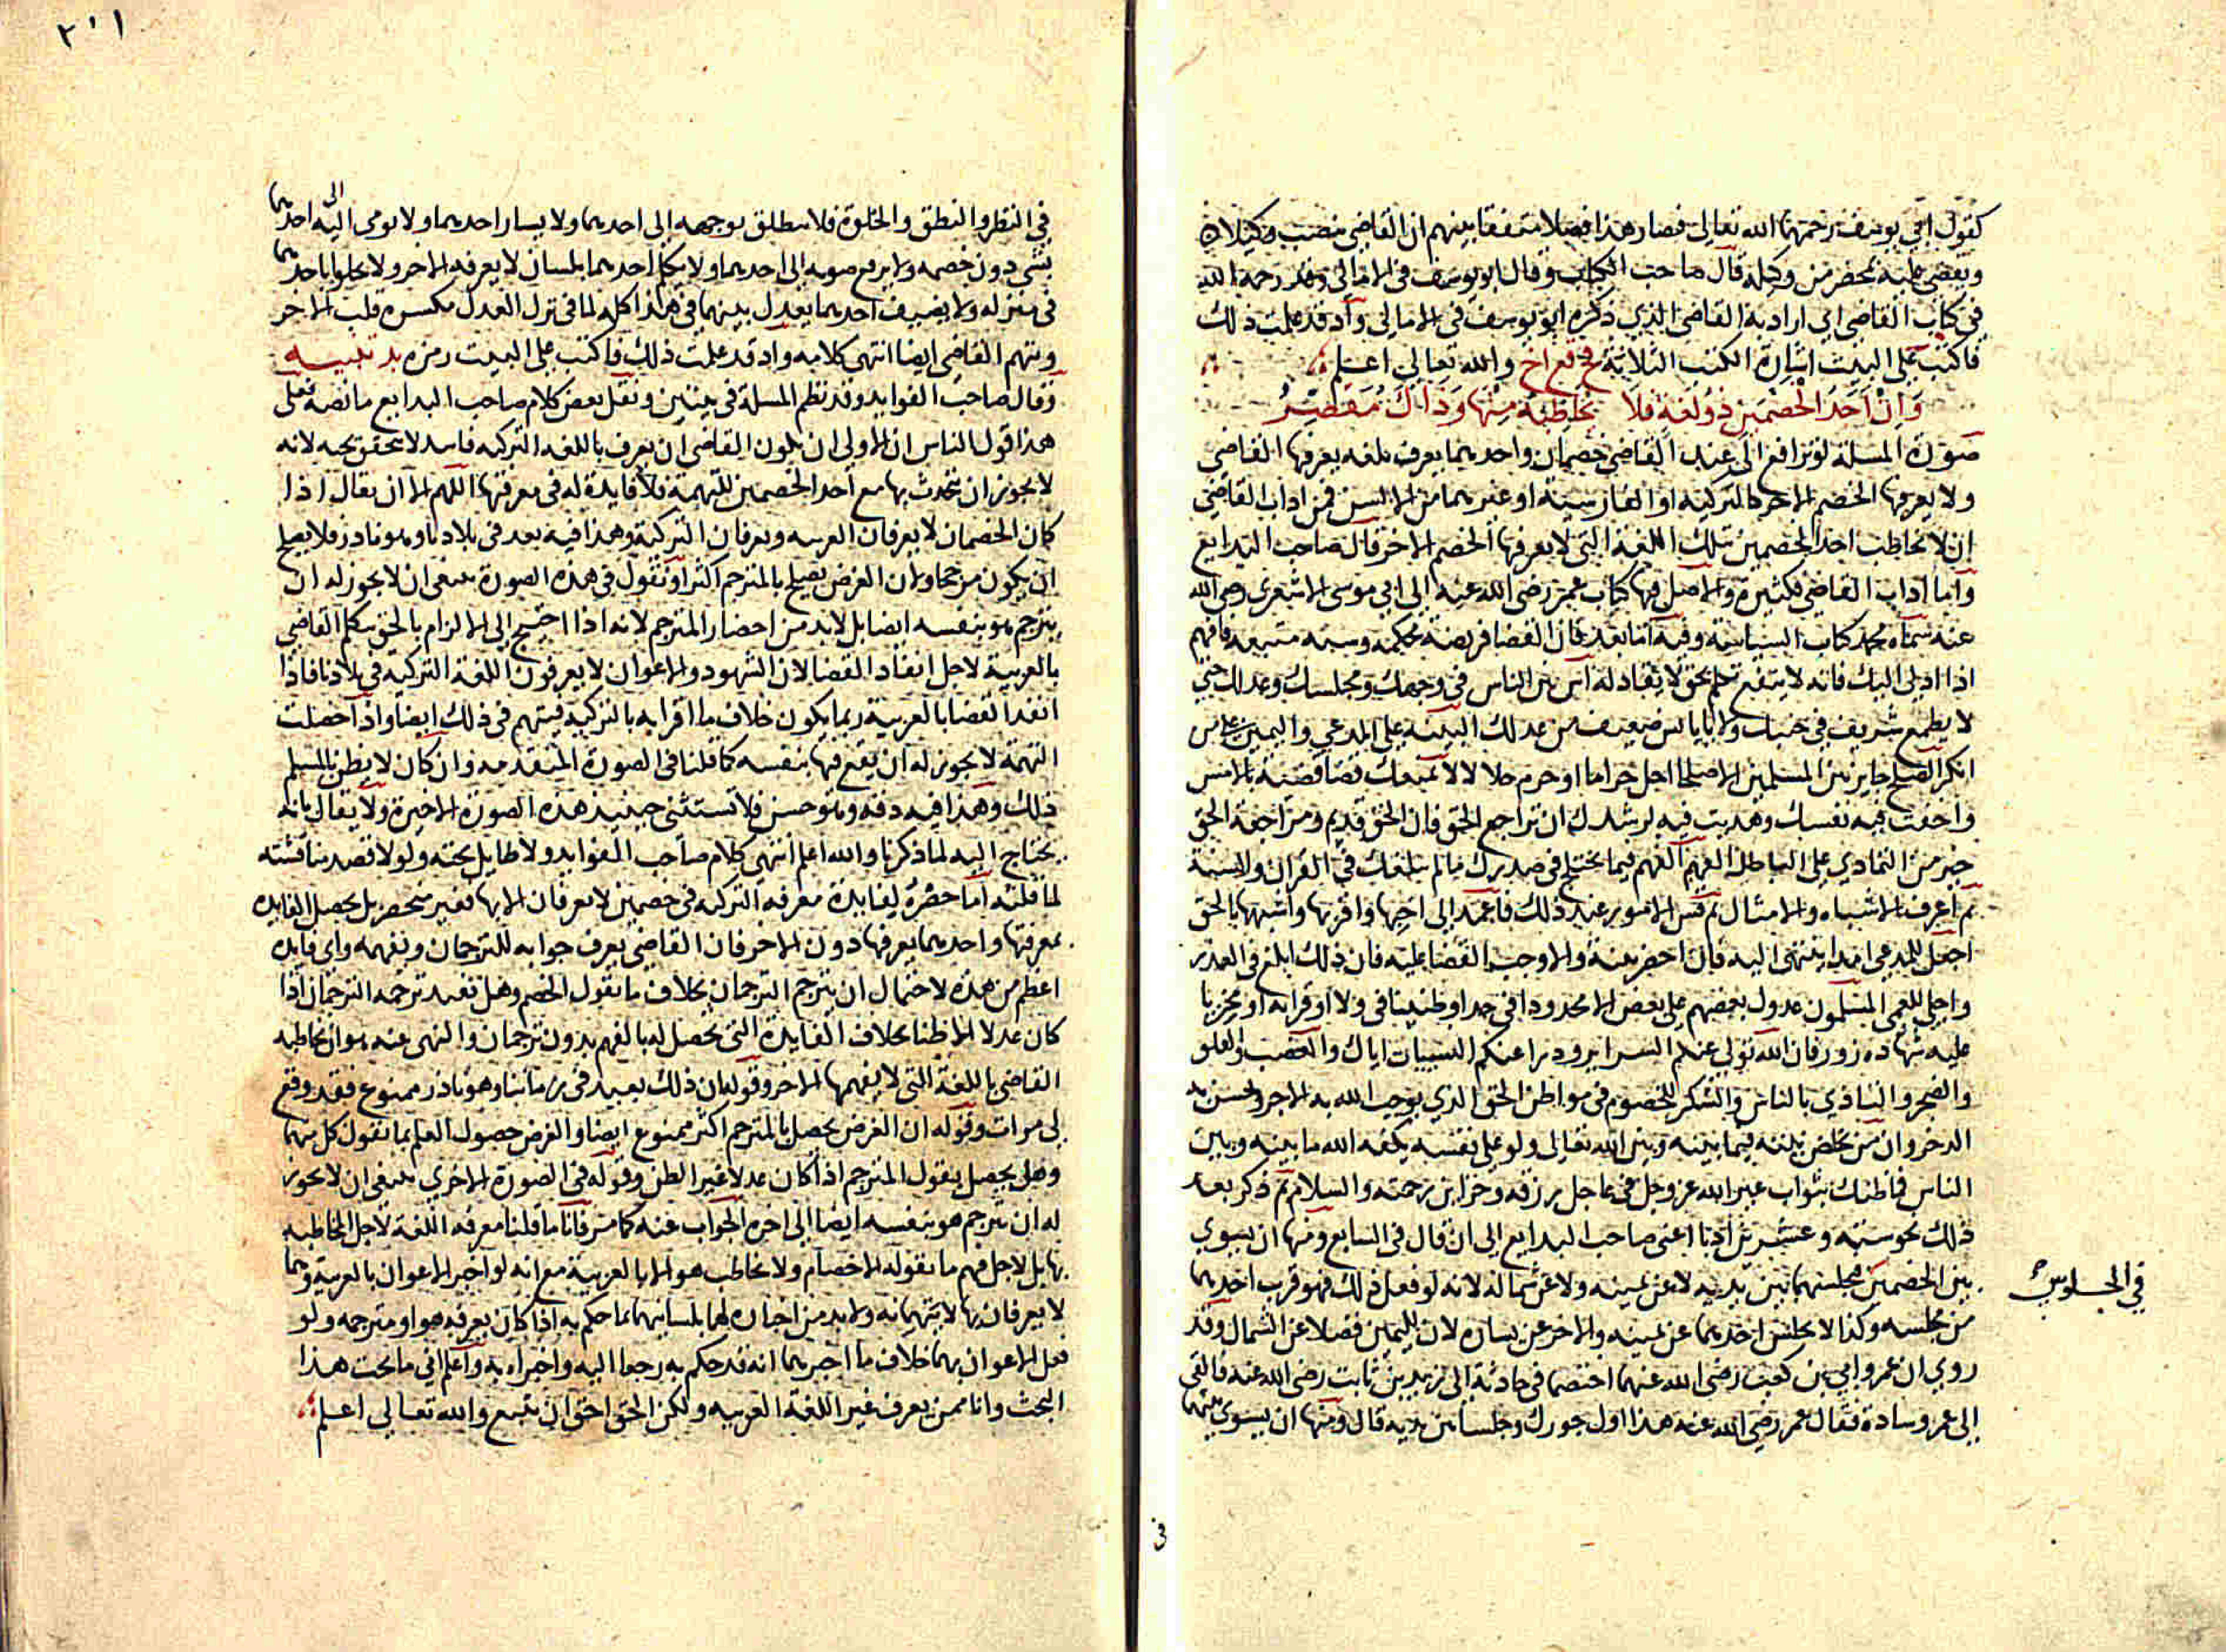 كقول ابي يوسف رحمهما الله تعالى فصار هذا فصلا متفقا بينهم ان القاضي ينصب وكيلا
ويقضي عليه بمحضر من وكيله قال صاحب الكتاب وقال ابو يوسف في الامالي رحمه الله
في كتاب القاضي اي اراد به القاضي الذي ذكره ابو يوسف في الامالي واذ قد علمت ذلك
فاكتب على البيت اشارة الكتب الثلاثة والله تعالى اعلم
وَانْ اَحَدُ الْخَصْمَيْنِ ذُو لُغَةٍ فَلَا يُخَاطِبْهُ مِنْهَا وَذَاكَ مُقَصِّرُ
صورة المسئلة لو ترافع الى عند القاضي خصمان واحدهما يعرف بلغه يعرفها القاضي
ولا يعرفها الخصم الاخر كالتركية او الفارسية او غيرهما من الالسن فمن اداب القاضي
ان لا يخاطب احد الخصمين بتلك اللغة التي لا يعرفها الخصم الاخر قال صاحب البدايع
واما اداب القاضي فكثيرة والاصل فيها كتاب عمر رضي الله عنه الى ابي موسى الاشعري رضي الله
عنه سماه محمد كتاب السياسة وفيه اما بعد فان القضا فريضة محكمة وسنة متبعة فافهم
اذا ادلي اليك فانه لا ينفع تكلم بحق لا نفاذ له اس بين الناس في وجهك ومجلسك وعدلك حتى
لا يطمع شريف في حيفك ولا ياياس ضعيف من عدلك البينة على المدعي واليمين على من
انكر الصلح جايز بين المسلمين الا صلحا احل حراما او حرم حلالا لا يمنعك قضا قضيته بالامس
واجعت فيه نفسك وهديت فيه لرشدك ان تراجع الحق فان الحق قديم ومراجعة الحق
خير من التمادي على الباطل الفهم الفهم فيما يختلج في صدرك مما لم يبلغك في القران والسنة
ثم اعرف الاشباه والامثال ثم قس الامور عند ذلك فاعمد الى احبها واقربها واشبهها بالحق
اجعل للمدعي امدا ينتهي اليه فان احضر بينة والا وجب القضا عليه فان ذلك ابلغ في العذر
واجلى للعمى المسلمون عدول بعضهم على بعض الا محدودا في حد او ظنينا في ولا او قرابه او مجربا
عليه شهاده زور فان الله تولى عنكم السراير ودرا عنكم البينات اياك والغضب والقلق
والضجر والتاذي بالناس والتنكر للخصوم في مواطن الحق الذي يوجب الله به الاجر ويحسن به
الذخر وان من يخلص نيته فيما بينه وبين الله تعالى ولو على نفسه يكفه الله ما بينه وبين
الناس فما ظنك بثواب غير الله عز وجل في عاجل رزقه وخزاين رحمته والسلام ثم ذكر بعد
ذلك نحو ستة وعشرين ادبا اعني صاحب البدايع الى ان قال في السابع ومنها ان يسوي
بين الخصمين مجلسهما بين يديه لا عن يمينه ولا عن شماله لانه لو فعل ذلك فهو قرب احدهما
في الجلوس
من مجلسه وكذا لا يجلس احدهما عن يمينه والاخر عن يساره لان لليمين فضلا عن الشمال وقد
روي ان عمر وابي بن كعب رضي الله عنهما اختصما في حادثة الى زيد بن ثابت رضي الله عنه فالقى
الى عمر وسادة فقال عمر رضي الله عنه هذا اول جورك وجلسا بين يديه قال ومنها ان يسوي بينهما
في
٢٠١
في النظر والنطق والخلوة فلا ينطلق بوجهه الى احدهما ولا يسار احدهما ولا يومى الى احدهما
بشي دون خصمه ولا يرفع صوته الى احدهما ولا يكلم احدهما بلسان لا يعرفه الاخر ولا يخلوا باحدهما
في منزله ولا يضيف احدهما يعدل بينهما في هذا كله لما في ترك العدل من كسره قلب الاخر
ويتهم القاضي ايضا انتهى كلامه واذ قد علمت ذلك فاكتب على البيت رمزه بد تنبيه
وقال صاحب الفوايد وقد نظم المسلة في بيتين ونقل بعض كلام صاحب البدايع ما نصه فعلى
هذا قول الناس ان الاولى ان يكون القاضي ان يعرف باللغه التركيه فاسد لا تحقق تحته لانه
لا يجوز ان يتحدث بها مع احد الخصمين للتهمة فلا فايدة له في معرفتها اللهم الا ان يقال اذا
كان الخصمان لا يعرفان العربيه ويعرفان التركية وهذا فيه بعد في بلادنا وهو نادر فلا يصلح
ان يكون مرجحا ولان الغرض يصلح بالمترجم اكثر او نقول في هذه الصورة ينبغي ان لا يجوز له ان
يترجم هو بنفسه ايضا بل لابد من احضار المترجم لانه اذا احتيج الى الالزام بالحق يتكلم القاضي
بالعربية لاجل انفاذ القضا لان الشهود والاعوان لا يعرفون اللغة التركيه في بلادنا فاذا
انفذ القضا بالعربية ربما يكون خلاف ما اقرا به بالتركية فيتهم في ذلك ايضا واذا حصلت
التهمة لا يجوز له ان يقع فيها بنفسه كما قلنا في الصورة المتقدمه وان كان لا يظن بالمسلم
ذلك وهذا فيه دقه وهو حسن فلا تستثنى حينيذ هذه الصورة الاخيرة ولا يقال بانه
يحتاج اليه لما ذكرنا والله اعلم انتهى كلام صاحب الفوايد ولا طايل تحته ولولا قصد مناقشته
لما قلته اما حصره لفايدة معرفه التركيه في خصمين لا يعرفان الا بها فغير منحصر بل يحصل الفايده
بمعرفتها واحدهما يعرفها دون الاخر فان القاضي يعرف جوابه للترجمان ويفهمه واي فايده
اعظم من هذه لاحتمال ان يترجم الترجمان بخلاف ما يقول الخصم وهل تفيد ترجمه الترجمان اذا
كان عدلا الا ظنا بخلاف الفايدة التي يحصل له بالفهم بدون ترجمان والنهى عنه هو ان يخاطبه
القاضي باللغة التي لا يفهمها الاخر وقوله ان ذلك بعيد في زماننا وهو نادر ممنوع فقد وقع
لي مرات وقوله ان الغرض يحصل بالمترجم اكثر ممنوع ايضا والغرض حصول العلم بما يقول كل منهما
وهل يحصل بقول المترجم اذا كان عدلا غير الظن وقوله في الصورة الاخرى ينبغي ان لا يجوز
له ان يترجم هو بنفسه ايضا الى اخره الجواب عنه كما مر فانا ما قلنا معرفه اللغة لاجل المخاطبه
بها بل لاجل فهم ما يقوله الاخصام ولا يخاطب هو الا بالعربية مع انه لو اخبر الاعوان بالعربية وهما
لا يعرفان بها لا يتهمانه ولابد من اخباره لهما بلسانهما بما حكم به اذا كان يعرفه هو او مترجمه ولو
فعل الاعوان بهما خلاف ما اخبرهما انه قد حكم به رجعا اليه واخبراه به واعلم اني ما بحثت هذا
البحث وانا ممن يعرف غير اللغة العربيه ولكن الحق احق ان يتبع والله تعالى اعلم